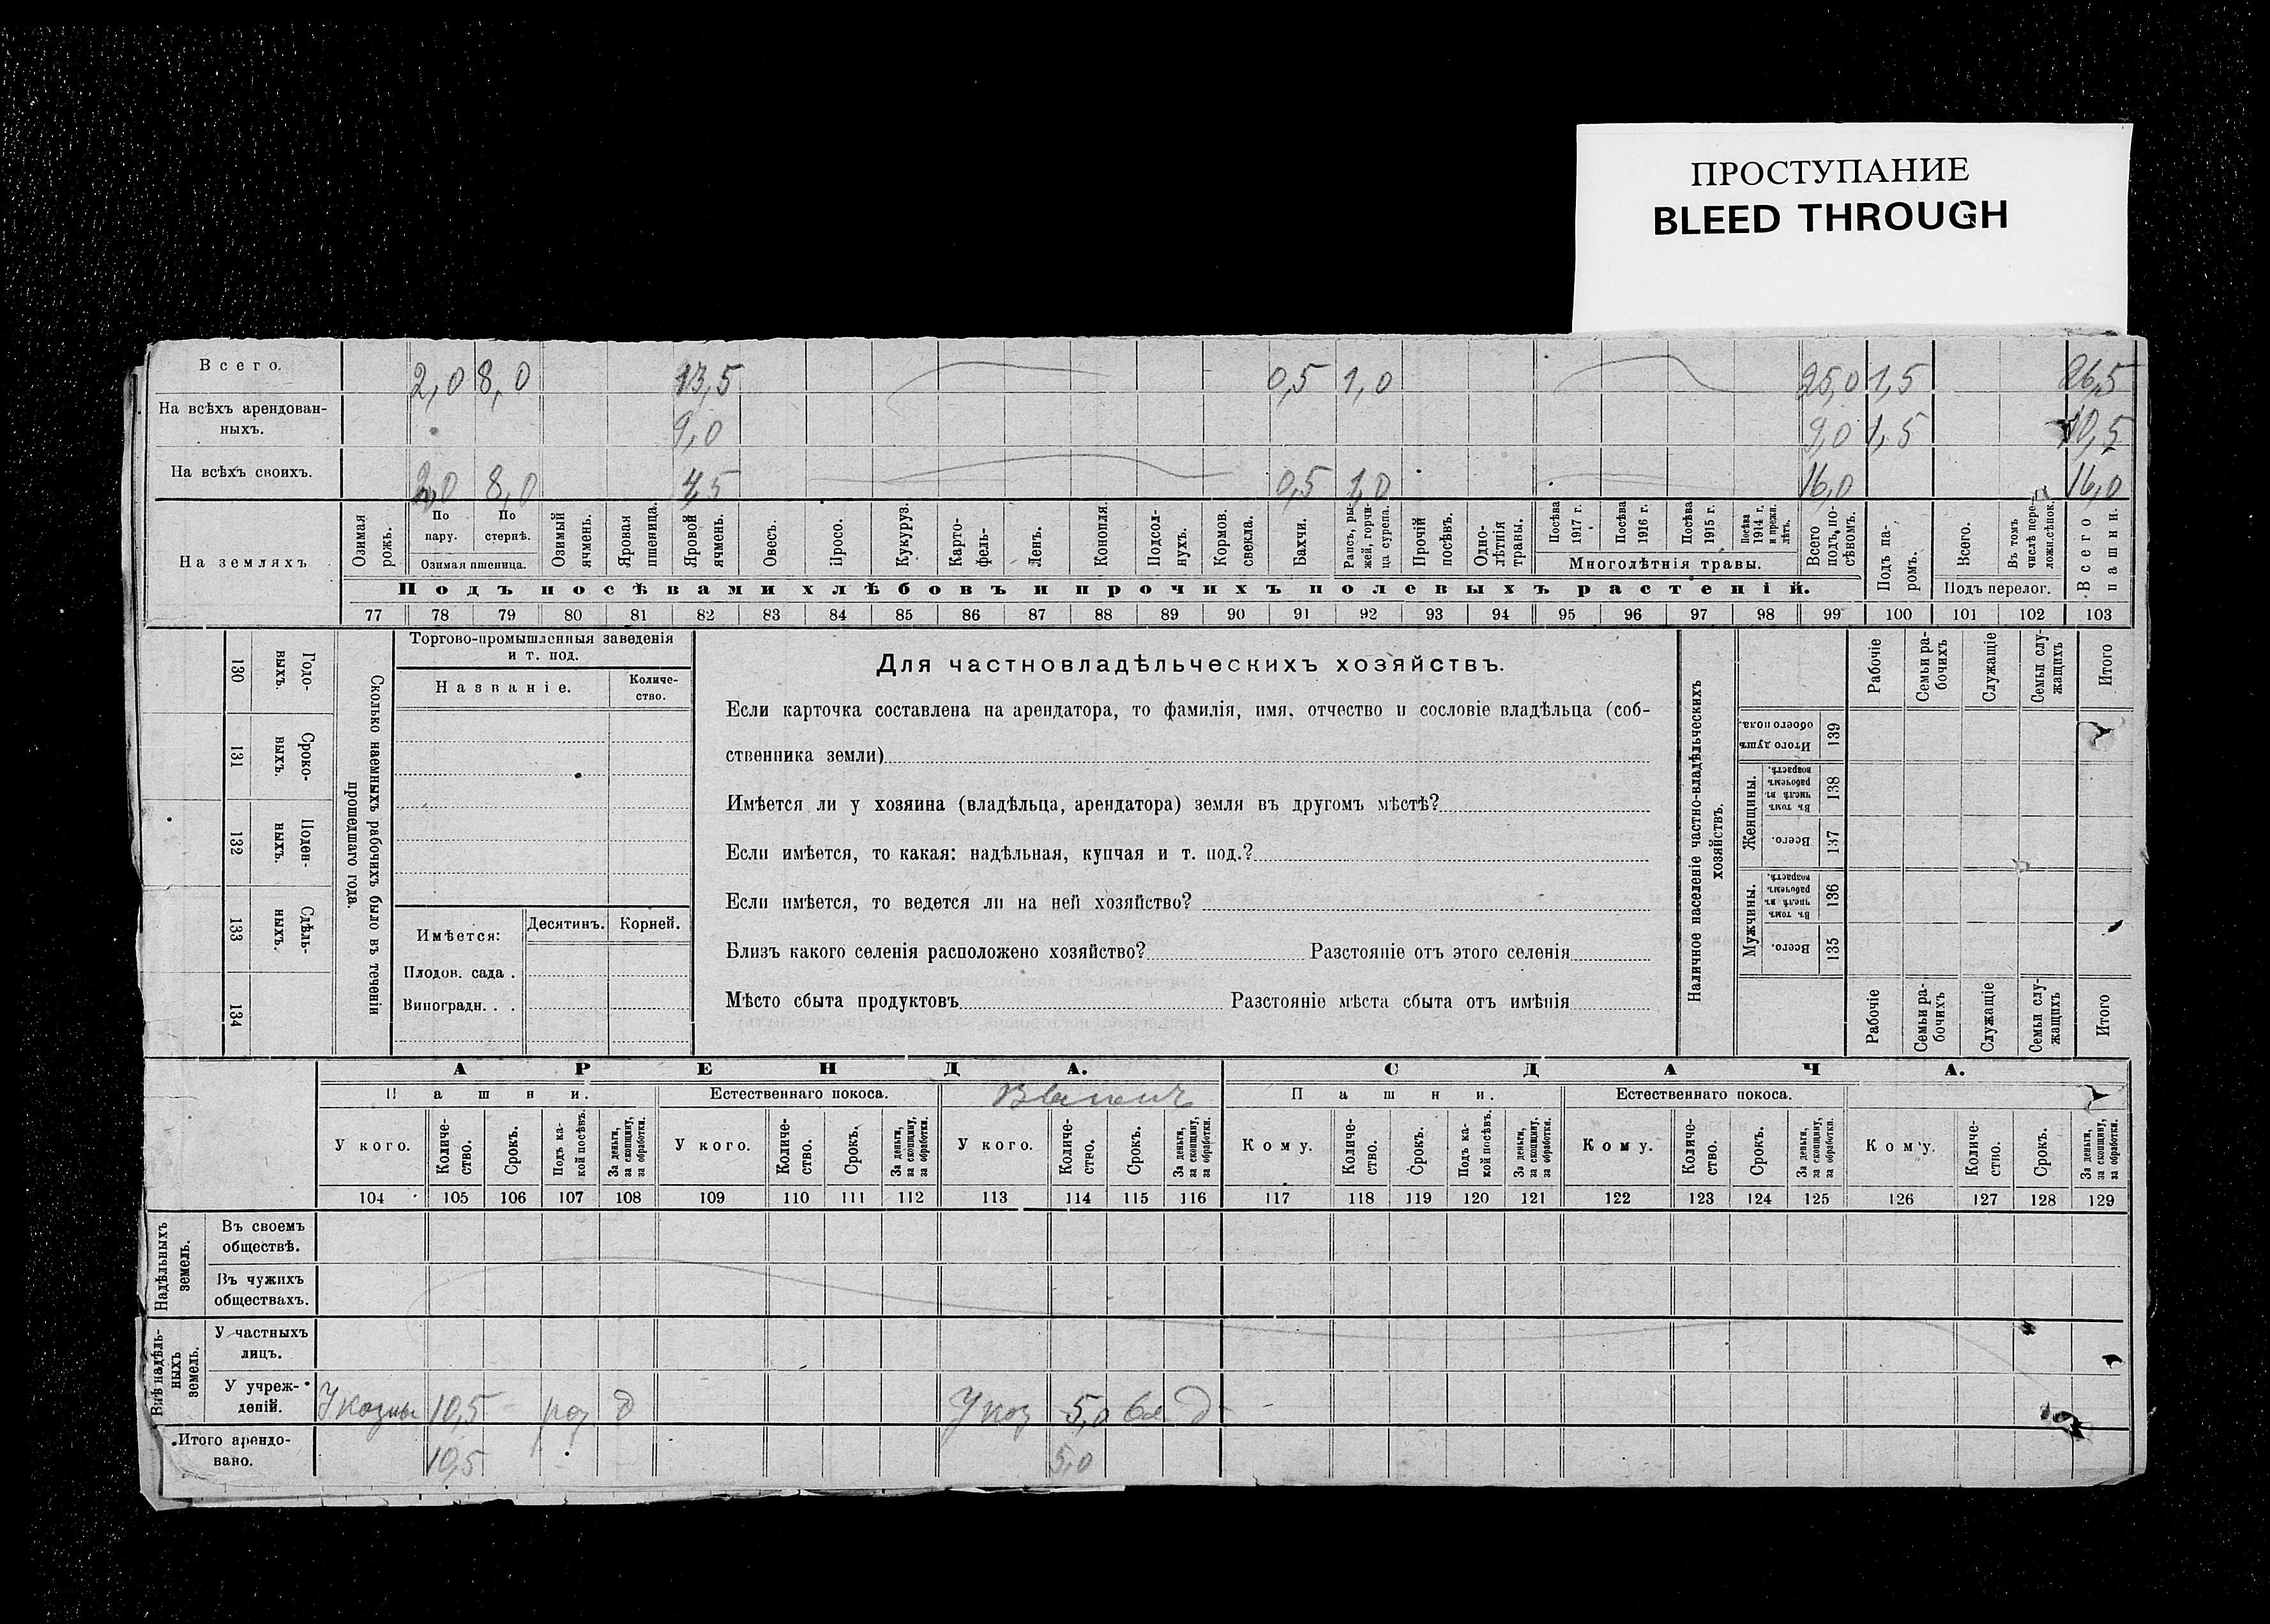 ПРОСТУПАНИЕ
BLEED THROUGH
Всего. 2,0 8,0 13,5 0,5 1,0 25,0 1,5 26,5
На всѣхъ арендован-
ныхъ. 9,0 9,0 1,5 10,5
На всѣхъ своихъ. 2,0 8,0 4,5 0,5 1,0 16,0 16,0
На земляхъ
Озимая рожь.
По пару.
По стернѣ.
Озимая пшеница.
Озимый ячмень.
Яровая пшеница.
Яровой ячмень.
Овесъ.
Просо.
Кукуруз.
Карто-
фель-
Ленъ.
Конопля.
Подсол-
нухъ.
Кормов. свекла.
Бахчи.
Рапсъ, ры-
жей, горчи-
ца сурепа.
Прочій посѣвъ.
Одно-
лѣтнія травы.
Посѣва 1917 г.
Посѣва 1916 г.
Посѣва 1915 г.
Посѣва 1914 г. и прежн. лѣтъ.
Многолѣтнія травы.
Всего подъ по-
сѣвомъ.
Подъ па-
ромъ.
Всего.
Въ томъ числѣ пере-
ложн.сѣнок.
Подъ перелог.
Всего пашни.
Подъ посѣвами хлѣбовъ и прочихъ полевыхъ растеній.
77 78 79 80 81 82 83 84 85 86 87 88 89 90 91 92 93 94 95 96 97 98 99 100 101 102 103
130 Годо-
выхъ.
131 Сроко-
выхъ.
132 Поден-
ныхъ.
133 Сдѣль-
ныхъ.
134
Сколько наемныхъ рабочихъ было въ теченіи
прошедшаго года.
Торгово-промышленныя заведенія
и т. под.
Названіе.
Количе-
ство.
Имѣется:
Десятинъ. Корней.
Плодов. сада .
Виноградн. . .
Для частновладѣльческихъ хозяйствъ.
Если карточка составлена на арендатора, то фамилія, имя, отчество и сословіе владѣльца (соб-
ственника земли)
Имѣется ли у хозяина (владѣльца, арендатора) земля въ другомъ мѣстѣ?
Если имѣется, то какая: надѣльная, купчая и т. под.?
Если имѣется, то ведется ли на ней хозяйство?
Близъ какого селенія расположено хозяйство? Разстояніе отъ этого селенія
Мѣсто сбыта продуктовъ Разстояніе мѣста сбыта отъ имѣнія
Наличное населеніе частно-владѣльческихъ
хозяйствъ.
Рабочіе
Семьи ра-
бочихъ
Служащіе
Семьи слу-
жащихъ
Итого
Итого душъ обоего пола. 139
Женщины.
Въ томъ числѣ въ рабочемъ возрастѣ. 138
Всего. 137
Мужчины.
Въ томъ числѣ въ рабочемъ возрастѣ. 136
Всего. 135
Рабочіе
Семьи ра-
бочихъ
Служащіе
Семьи слу-
жащихъ
Итого
АРЕНДА. СДАЧА.
Пашни. Естественнаго покоса. Пашни. Естественнаго покоса.
У кого. Количе-
ство. Срокъ. Подъ ка-
кой посѣвъ. За деньги, за скопщину, за обработки.
У кого. Количе-
ство. Срокъ. За деньги, за скопщину, за обработки.
У кого. Количе-
ство. Срокъ. За деньги, за скопщину, за обработки.
Кому. Количе-
ство. Срокъ. Подъ ка-
кой посѣвъ. За деньги, за скопщину, за обработки.
Кому. Количе-
ство. Срокъ. За деньги, за скопщину, за обработки.
Кому. Количе-
ство. Срокъ. За деньги, за скопщину, за обработки.
104 105 106 107 108 109 110 111 112 113 114 115 116 117 118 119 120 121 122 123 124 125 126 127 128 129
Надѣльныхъ земель.
Въ своемъ
обществѣ.
Въ чужихъ
обществахъ.
Внѣ надѣль-
ныхъ земель.
У частныхъ
лицъ.
У учреж-
деній. У казны 10,5 д У каз 5,0 д
Итого арендо-
вано. 10,5 5,0